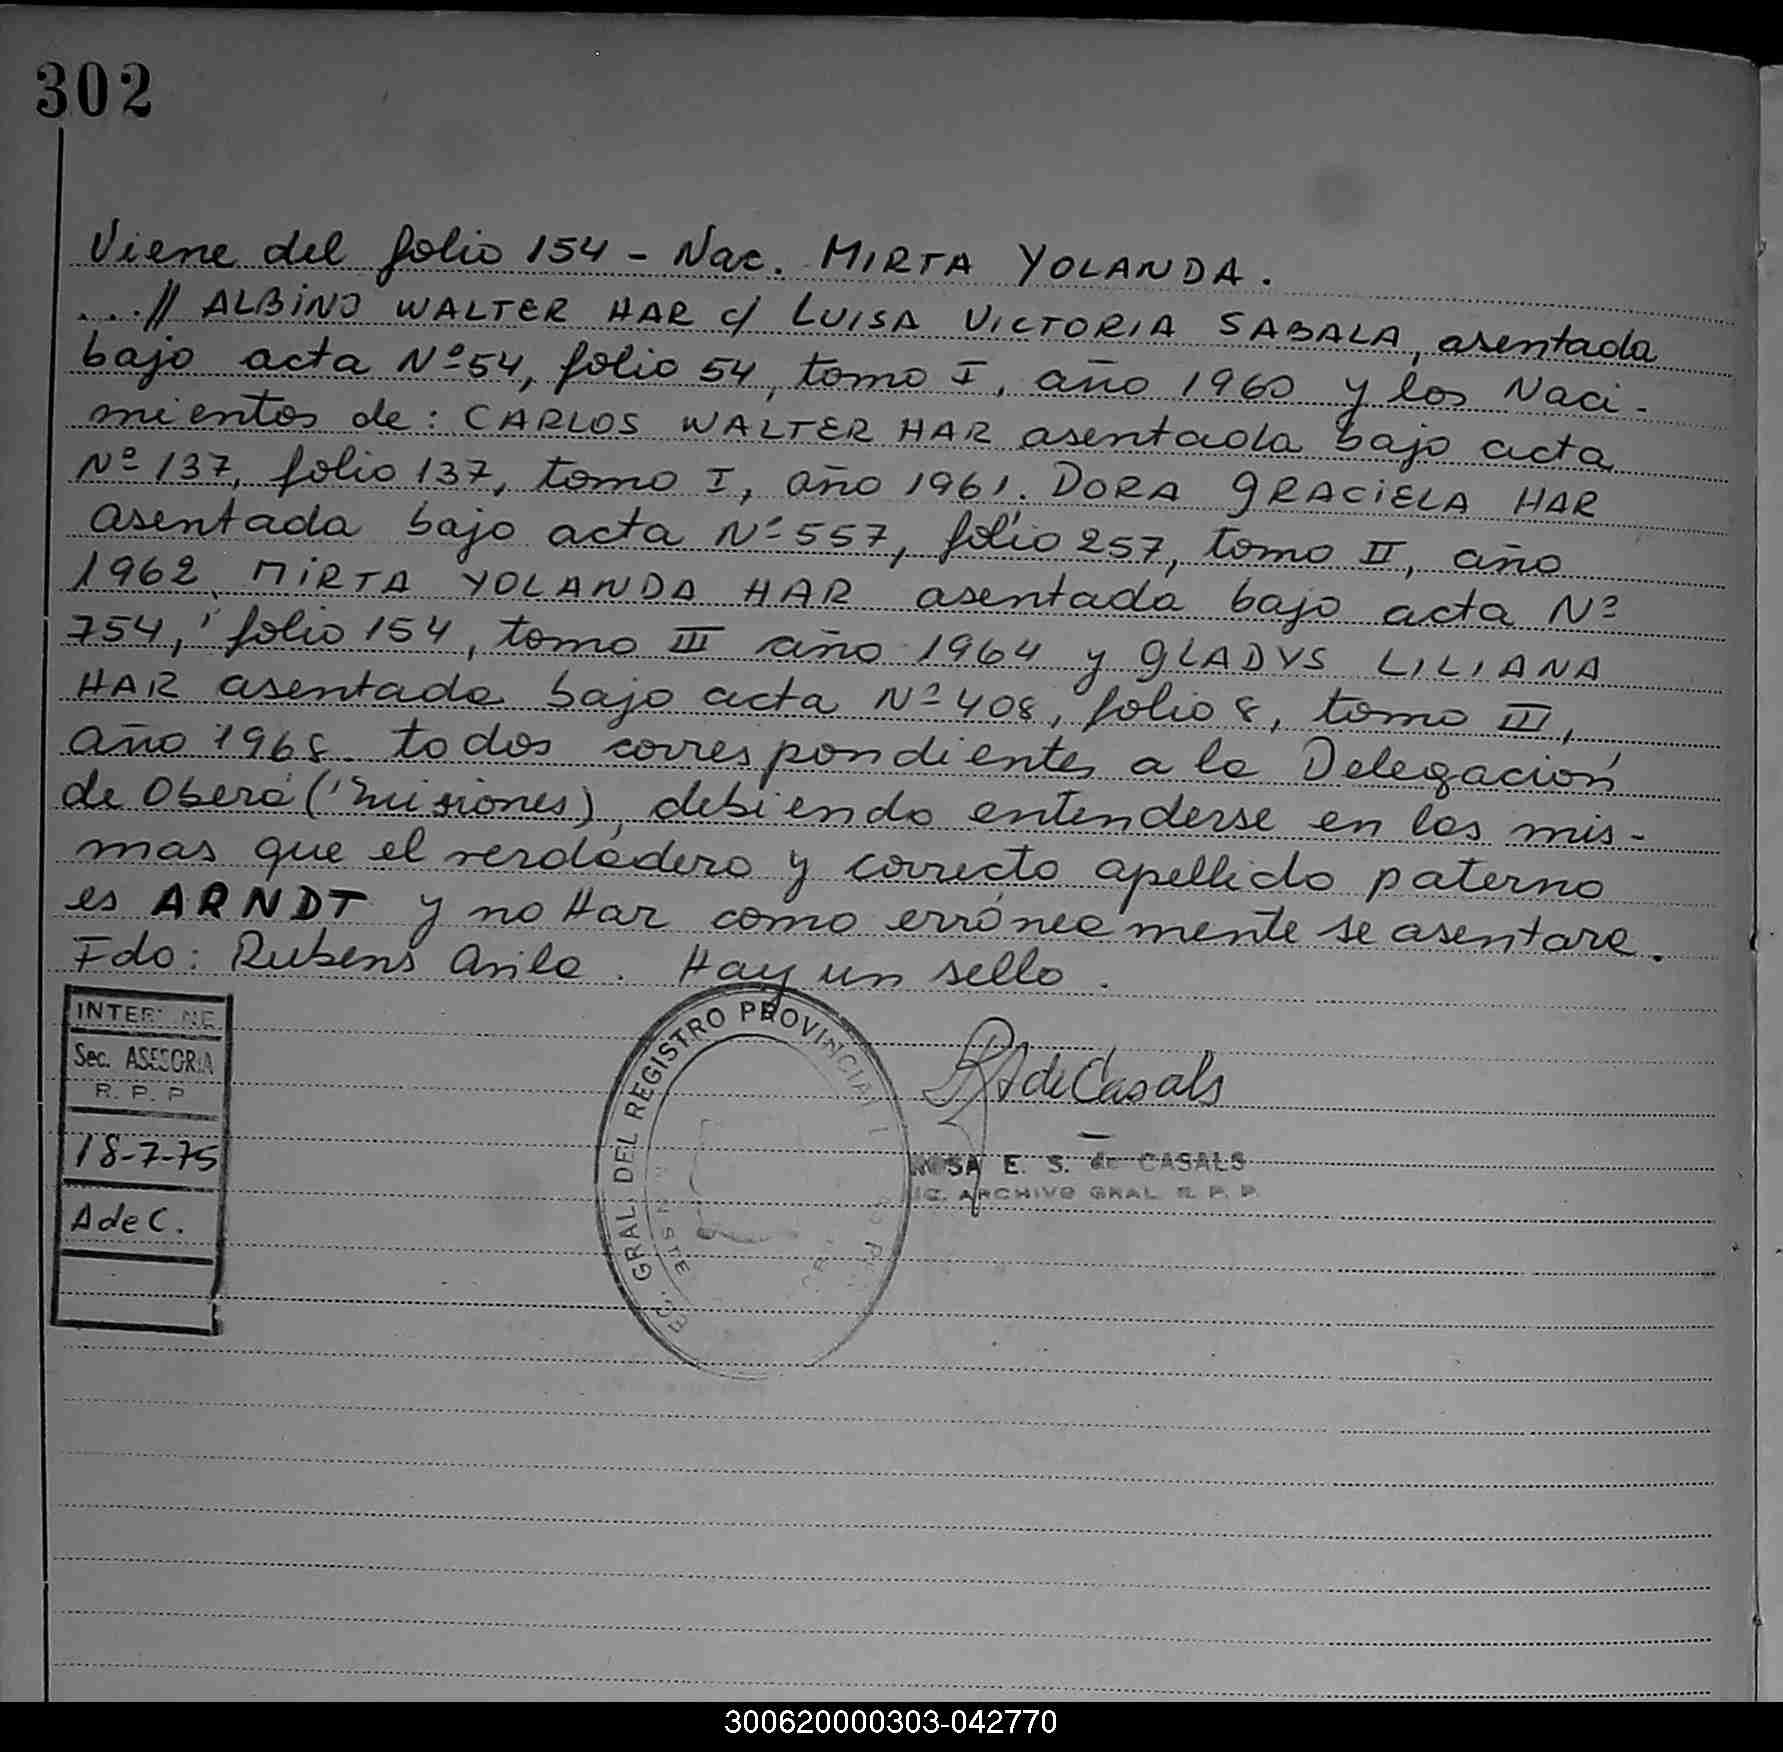 302
Viene del folio 154 - Nac. MIRTA YOLANDA.
...// ALBINO WALTER HAR c/ LUISA VICTORIA SABALA, asentada
bajo acta Nº 54, folio 54, tomo I, año 1960 y los Naci-
mientos de: CARLOS WALTER HAR asentada bajo acta
Nº 137, folio 137, tomo I, año 1961. DORA GRACIELA HAR
asentada bajo acta Nº 557, folio 257, tomo II, año
1962, MIRTA YOLANDA HAR asentada bajo acta Nº
754, folio 154, tomo III año 1964 y GLADYS LILIANA
HAR asentada bajo acta Nº 408, folio 8, tomo III,
año 1968. todos correspondientes a la Delegación
de Oberá (Misiones), debiendo entenderse en las mis-
mas que el verdadero y correcto apellido paterno
es ARNDT y no Har como erróneamente se asentara.
Fdo: Rubens Avila. Hay un sello.
INTER NE
Sec. ASESORIA
R. P. P
18-7-75
A de C.
GRAL. DEL REGISTRO PROVINCIAL
de Casals
ROSA E. S. de CASALS
ARCHIVO GRAL. R. P. P.
300620000303-042770